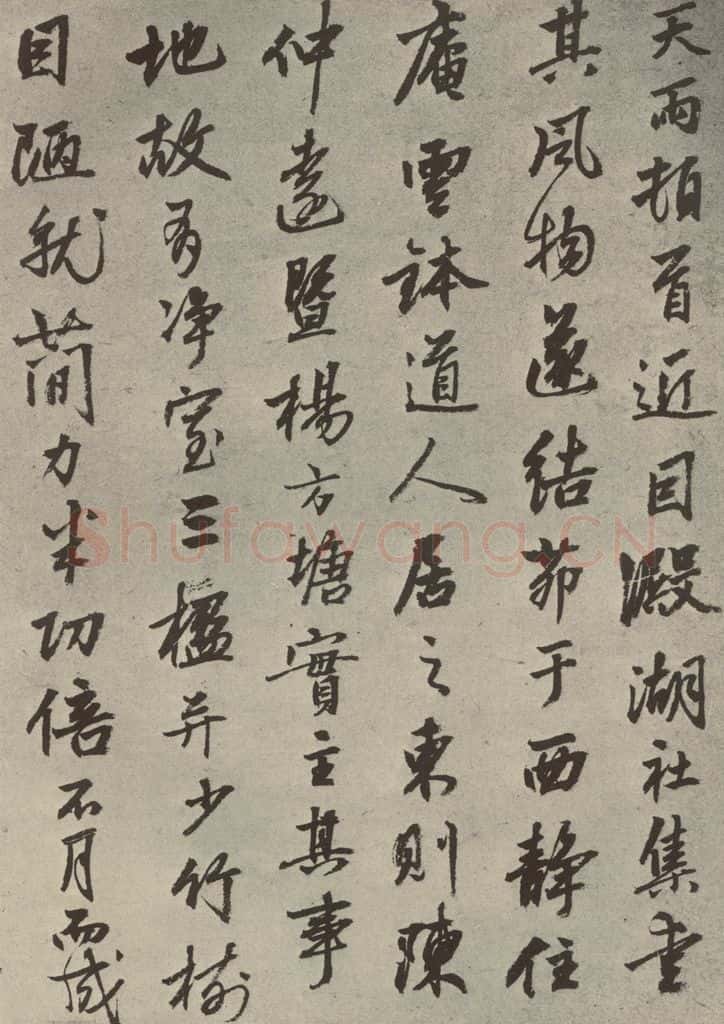 天雨頓首近因澱湖社集重
其風物遂結茆于西靜住
菴雲鉢道人居之東則陳
仲遠暨楊方塘實主其事
地故有净室三楹并少竹樹
因陋就簡力半功倍不月而成
Shufawang.CN